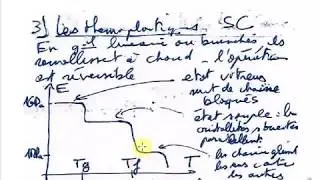 3) Les thermoplastiques SC
En gal linéaire ou branchés ils
ramollissent à chaud. l'opération
est réversible
E
état vitreux
mvt de chaîne
bloqués
1GPa
état souple: les
cristallites structes
les chaînes glissent
les uns contre
les autres
Tg
Tf
T